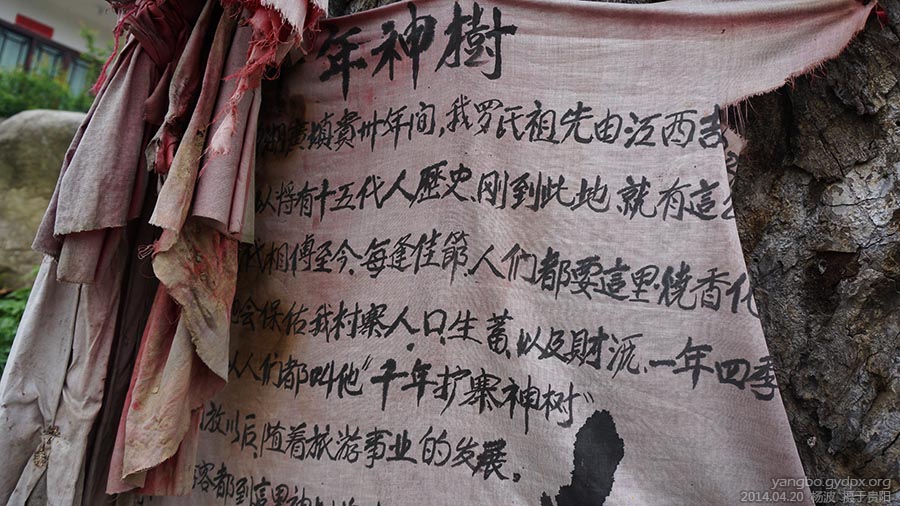 年神樹
填貴卅年间,我罗氏祖先由江西吉
以将有十五代人歷史、刚到此地、就有這
代相傳至今、每逢佳節、人们都要這里烧香化
会保佑我村寨、人、口、生畜、以及財沠、一年四季
以人们都叫他"千年护寨神树"
放以后随着旅游事业的发展,
都到這里神
yangbo.gydpx.org
2014.04.20 杨波 摄于贵阳